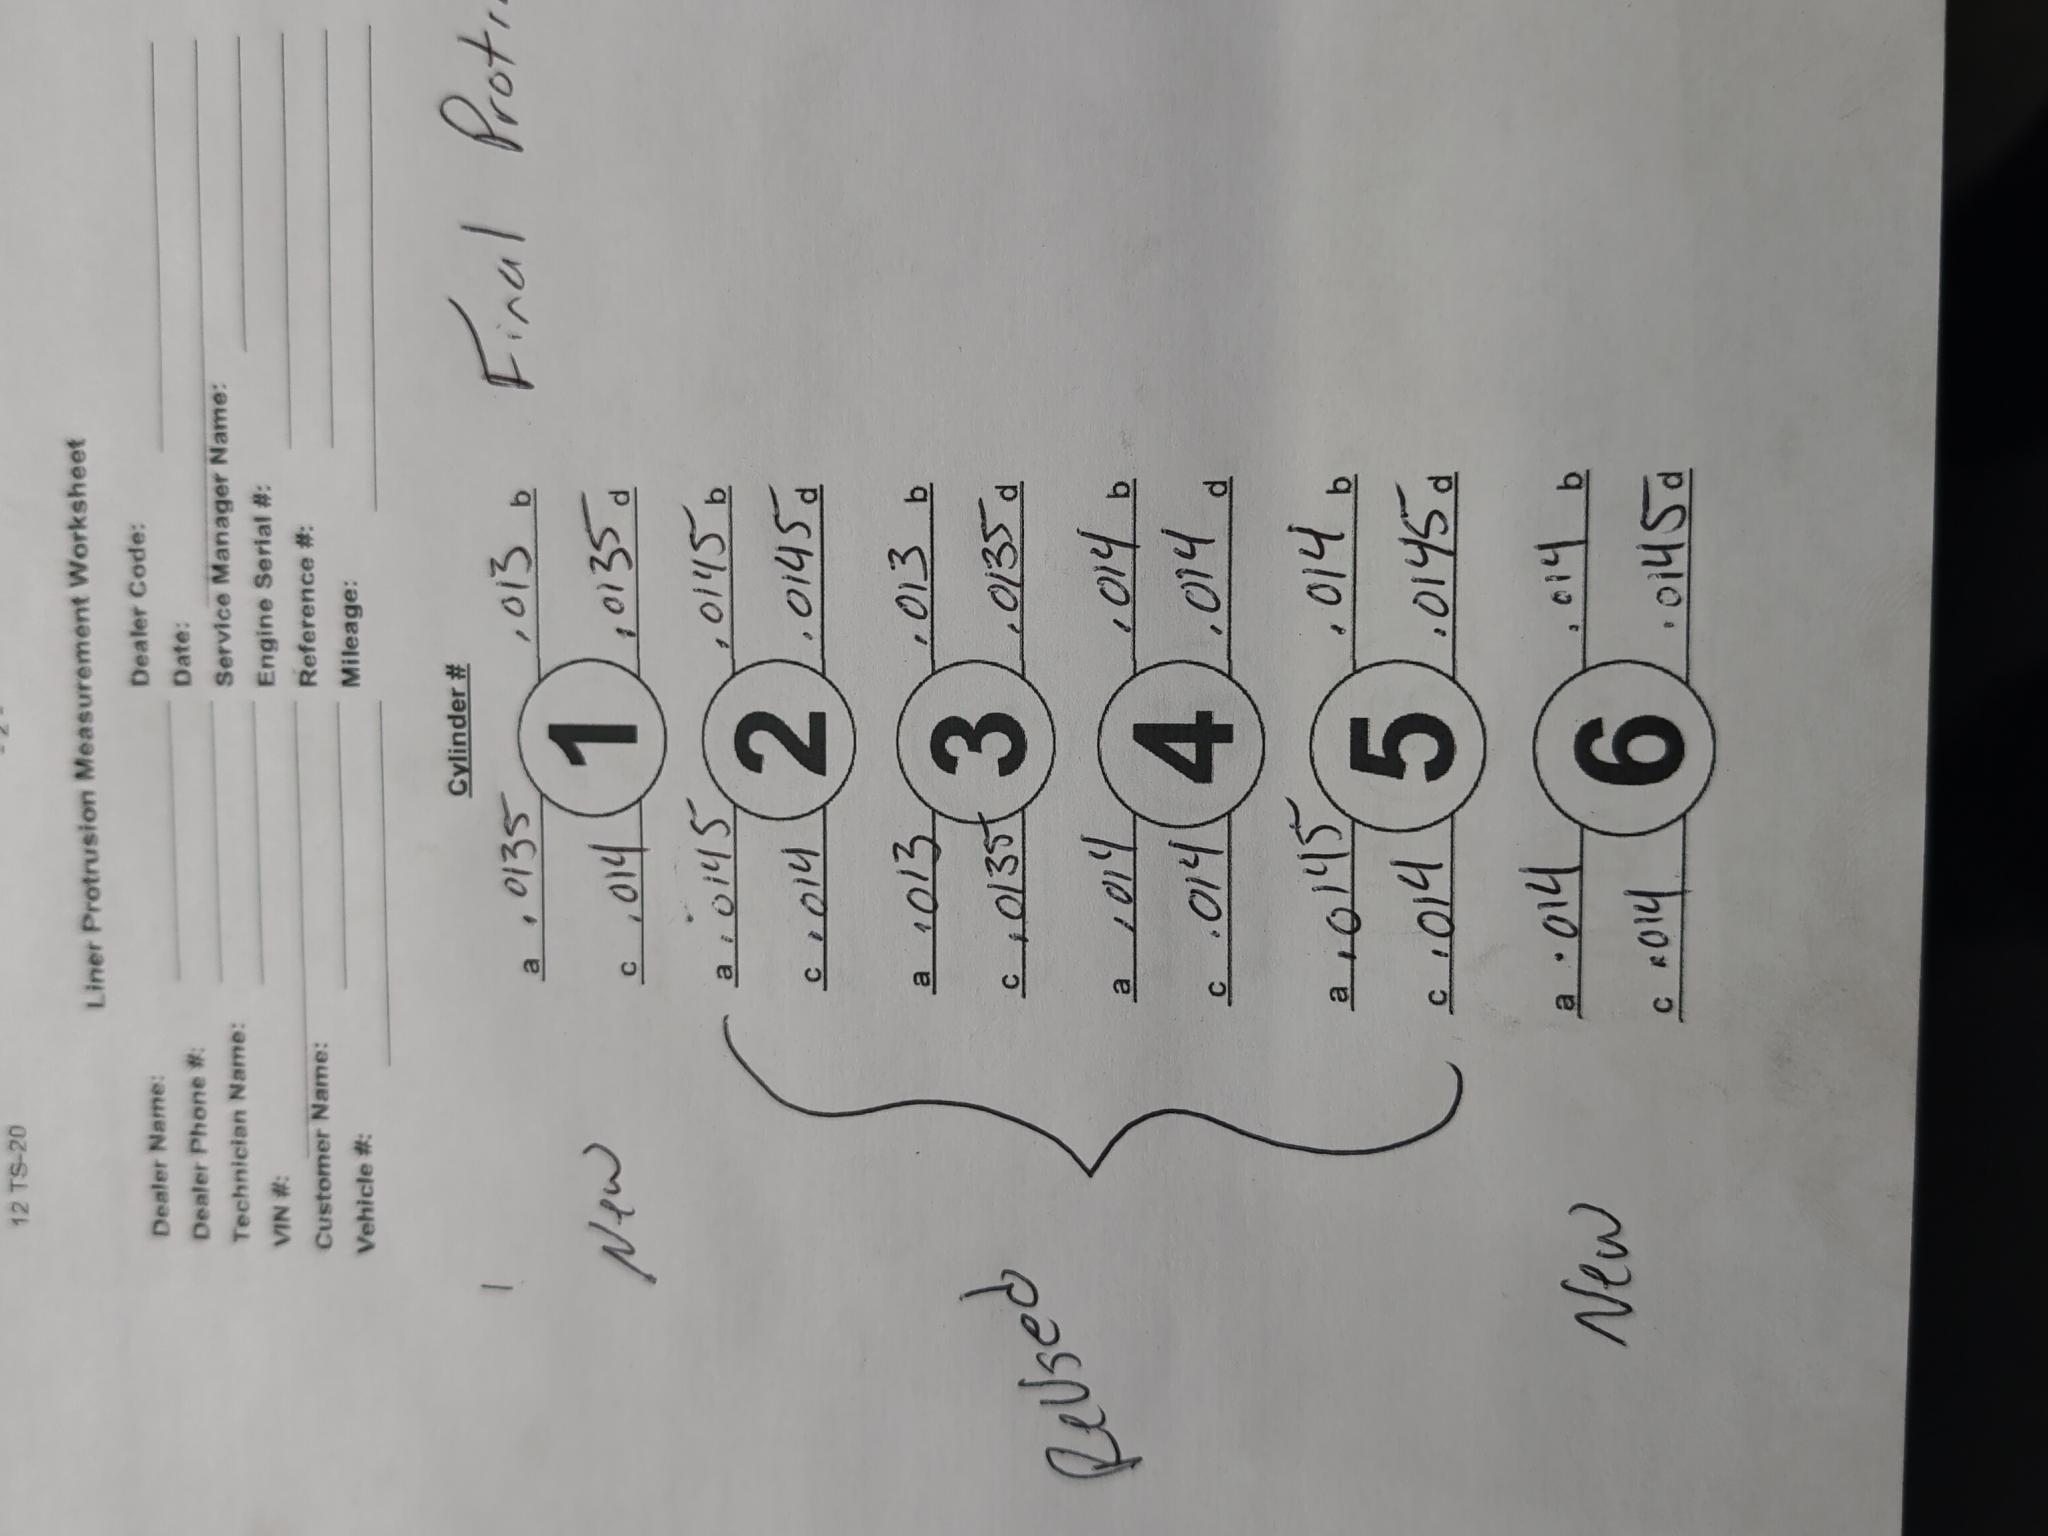 12 TS-20
Liner Protrusion Measurement Worksheet
Dealer Name: Dealer Code:
Dealer Phone #: Date:
Technician Name: Service Manager Name:
VIN #: Engine Serial #:
Customer Name: Reference #:
Vehicle #: Mileage:
Cylinder #
Final
a .0135 .013 b
New 1
c .014 .0135 d
a .0145 .0145 b
2
c .014 .0145 d
a .013 .013 b
3
c .0135 .0135 d
ReUsed
a .014 .014 b
4
c .014 .014 d
a .0145 .014 b
5
c .014 .0145 d
a .014 .014 b
New 6
c .014 .0145 d